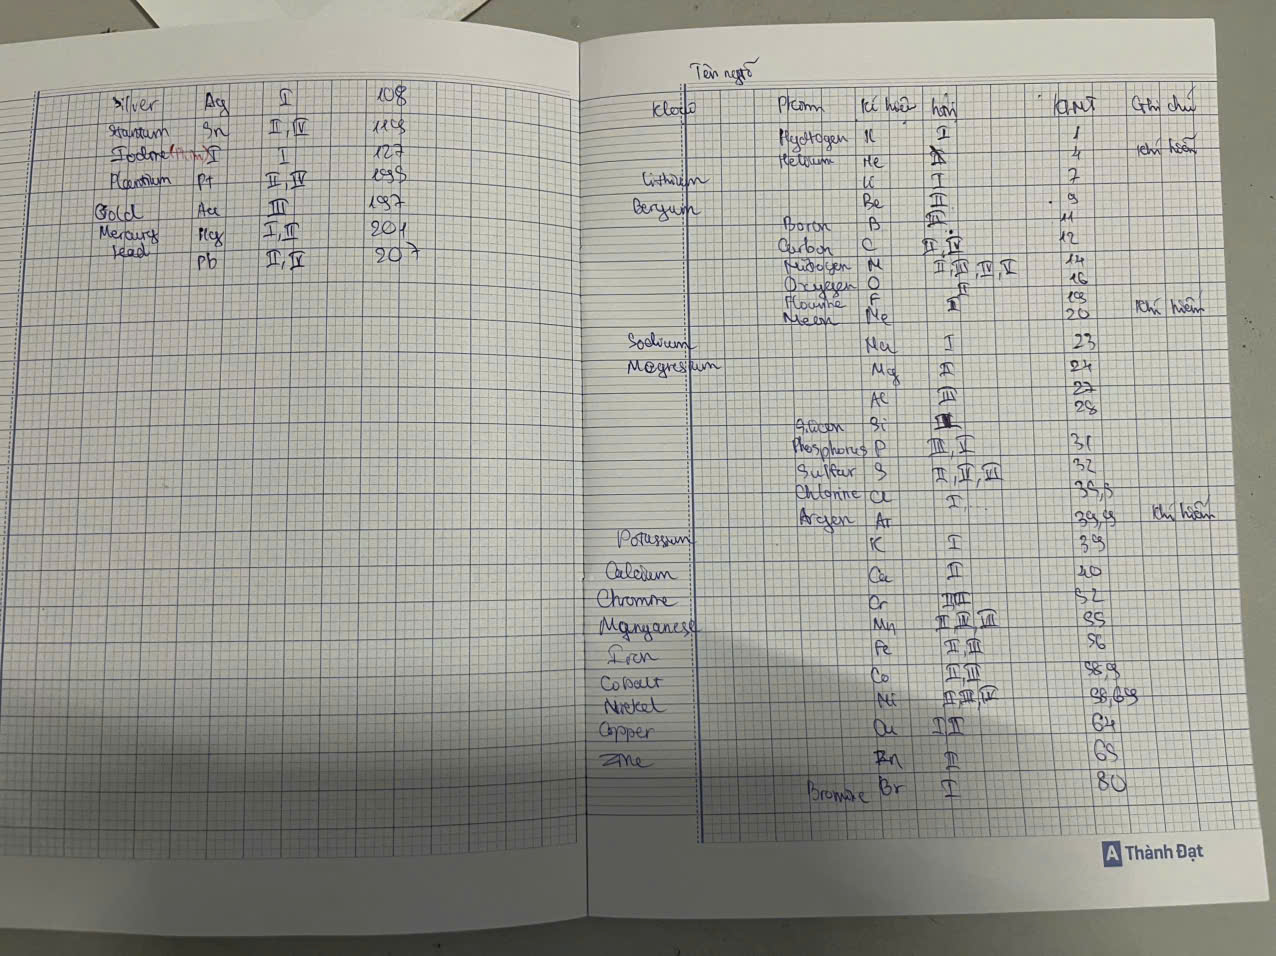 Silver Ag I 108
Stantum Sn II, IV 119
Iodine (Phim) I I 127
Plantium Pt II, IV 195
Gold Au III 197
Mercury Hg I, II 201
Lead Pb II, IV 207
Tên ngtố
Kloại Pkim Kí hiệu hóa KLNT Ghi chú
Hydrogen H I 1
Helium He 4 Khí hiếm
Lithium Li I 7
Beryum Be II 9
Boron B III 11
Carbon C II, IV 12
Nitrogen N II, III, IV, V 14
Oxygen O II 16
Flourine F I 19
Neon Ne 20 Khí hiếm
Sodium Na I 23
Magresium Mg II 24
Al III 27
Silicon Si 28
Phosphorus P III, V 31
Sulfur S II, IV, VI 32
Chlorine Cl I,... 35,5
Argon Ar 39,9 Khí hiếm
Potassium K I 39
Calcium Ca II 40
Chromine Cr II III 52
Manganese Mn II IV, VII 55
Iron Fe II, III 56
Cobalt Co II, III 58,9
Nickel Ni II, III, IV 58,69
Copper Cu I II 64
Zinc Zn II 65
Bromine Br I 80
A Thành Đạt